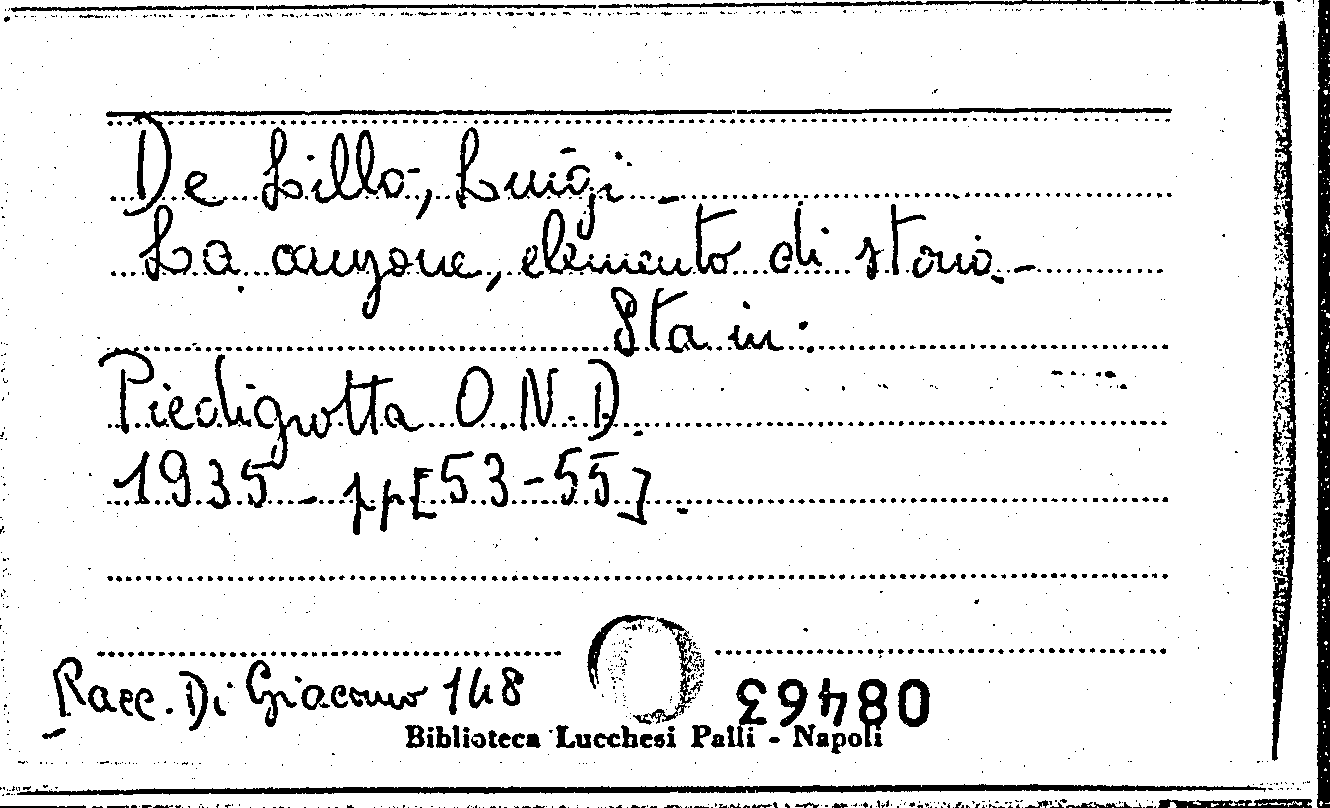 De Lillo, Luigi -
La canzone, elemento di storia. -
Sta in:
Piedigrotta O.N.D.
1935 - pp[53-55].
Racc. Di Giacomo 148
08463
Biblioteca Lucchesi Palli - Napoli